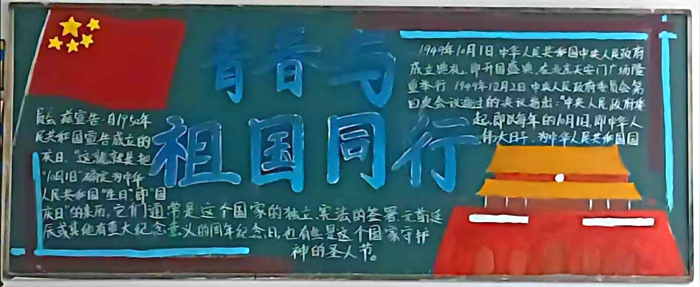 青春与
祖国同行
1949年10月1日中华人民共和国中央人民政府
成立典礼,即开国盛典,在北京天安门广场隆
重举行 1949年12月2日中央人民政府委员会第
四次会议通过的决议指出:"中央人民政府
起,即以每年的10月1日,即中华人
伟大日子,为中华人民共和国国
员会兹宣告:自1950年
民共和国宣告成立的
庆日。"这就就是把
"10月1日"确定为中华
人民共和国"生日",即"国
庆日"的来历。它们通常是这个国家的独立、宪法的签署、元首诞
辰或其他有重大纪念意义的周年纪念日,也有些是这个国家守护
神的圣人节。